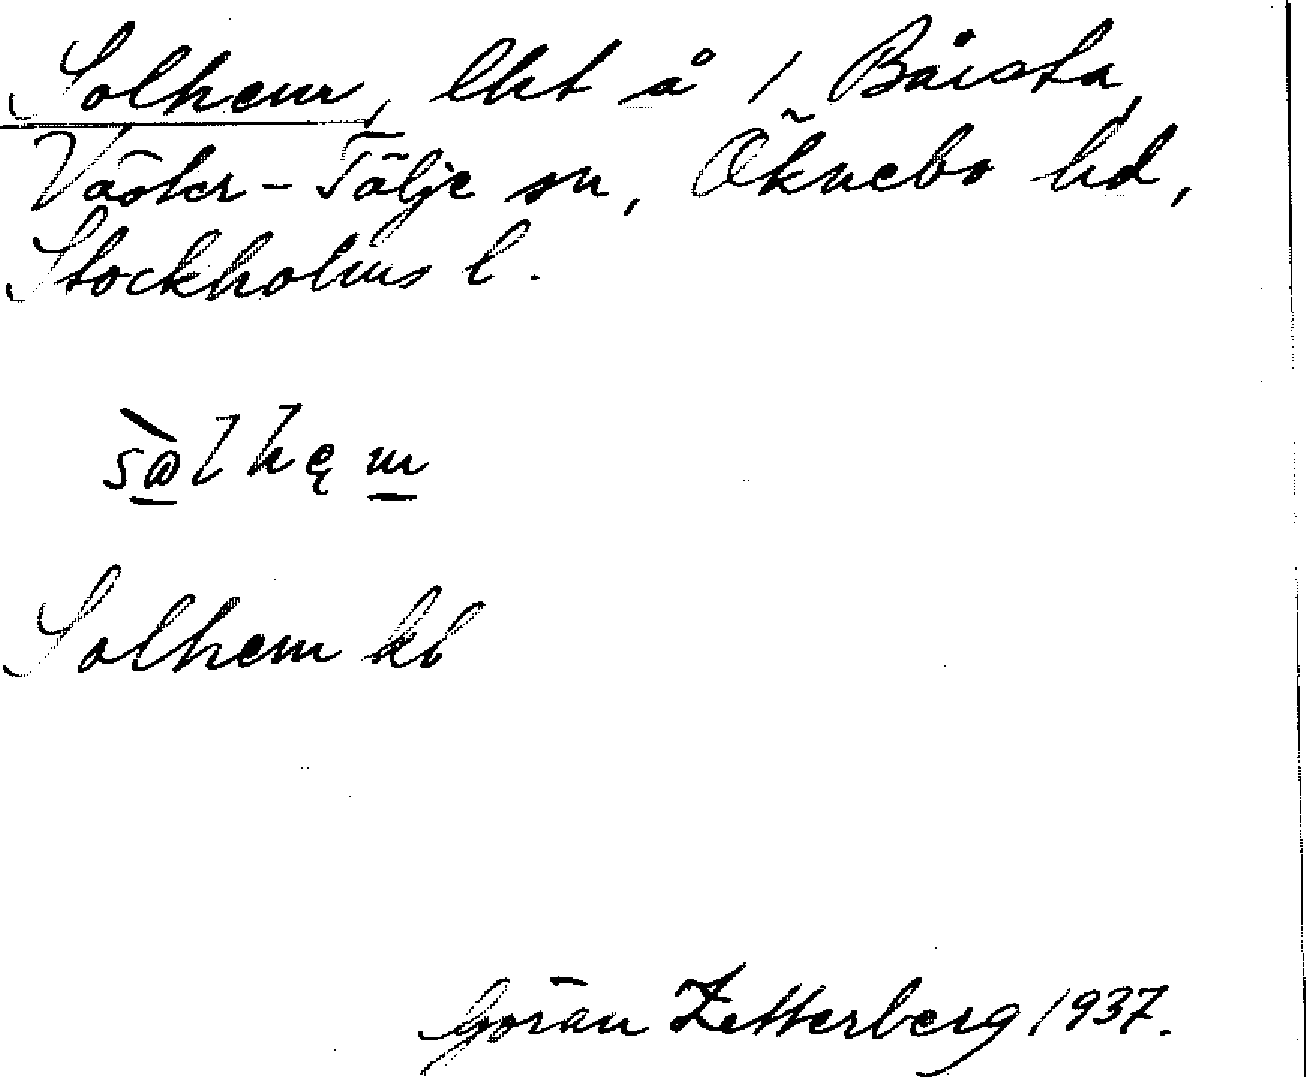 Solhem, lht å 1 Bårsta,
Väster-Tälje sn, Öknebo hd,
Stockholms l.
Solhem kb
Göran Zetterberg 1937.